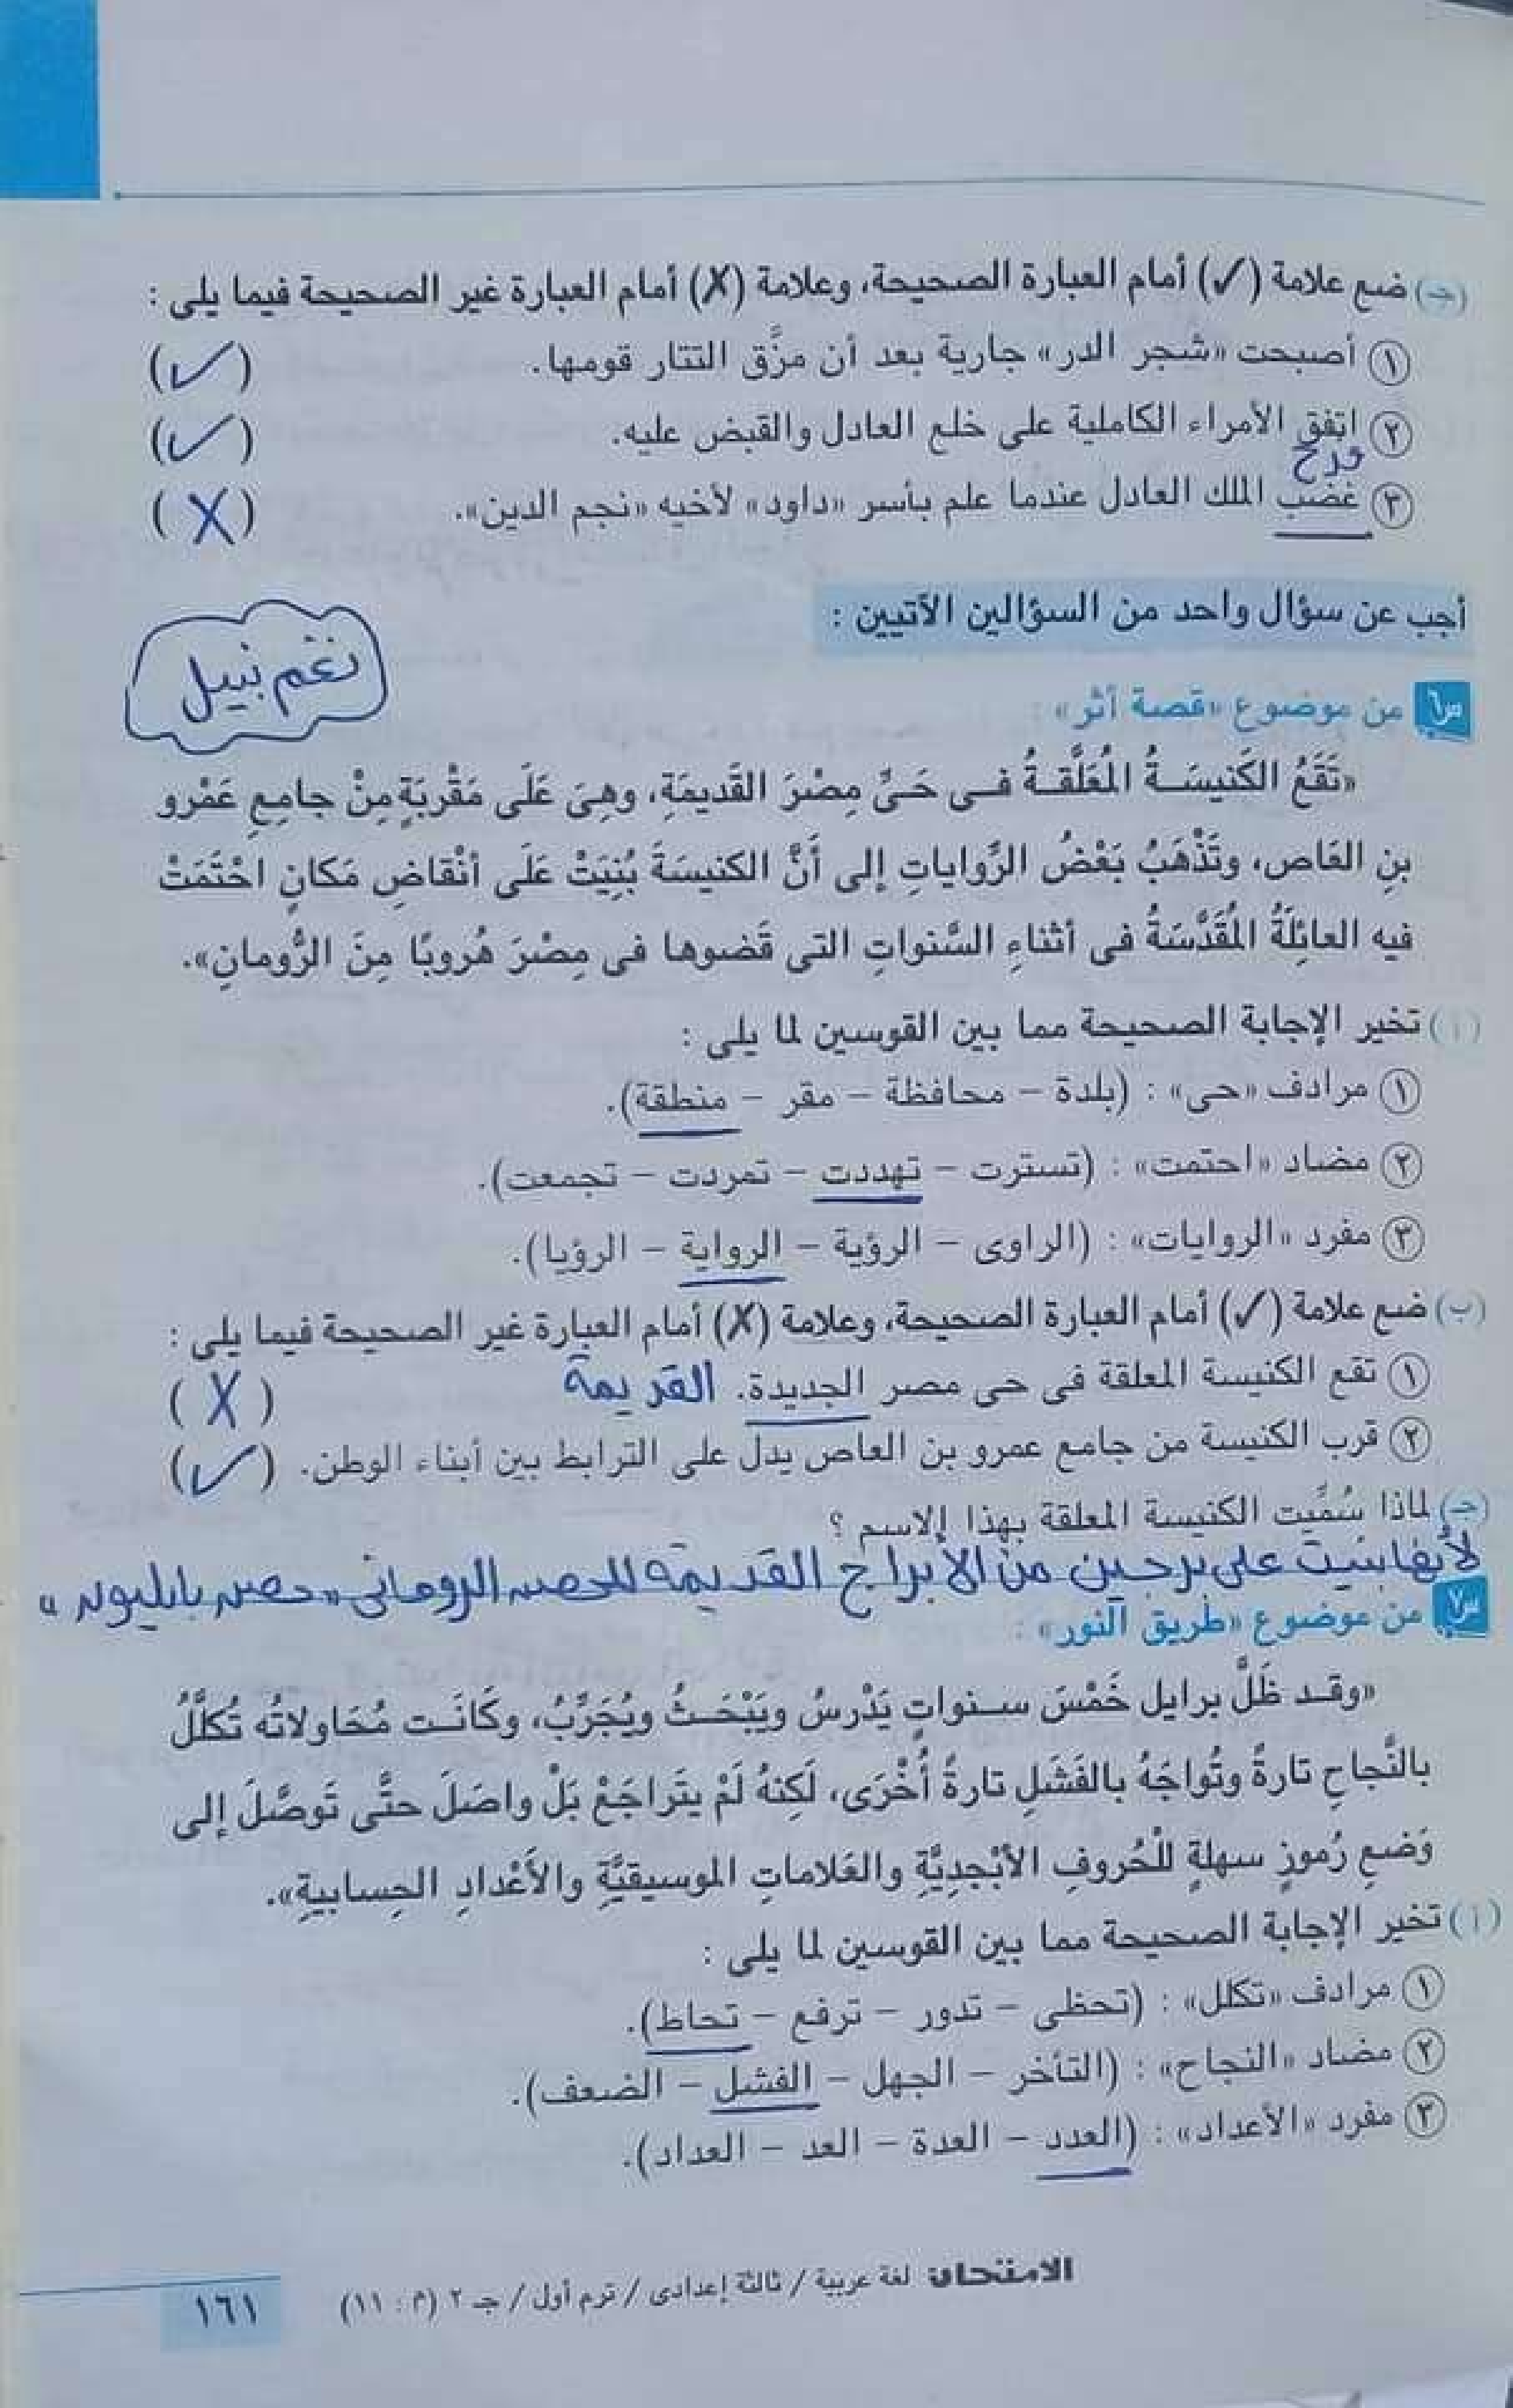 (جـ) ضع علامة (✓) أمام العبارة الصحيحة، وعلامة (X) أمام العبارة غير الصحيحة فيما يلى :
① أصبحت «شجر الدر» جارية بعد أن مزَّق التتار قومها. (✓)
② اتفق الأمراء الكاملية على خلع العادل والقبض عليه. (✓)
فرح
③ غضب الملك العادل عندما علم بأسر «داود» لأخيه «نجم الدين». (X)
أجب عن سؤال واحد من السؤالين الآتيين :
نغم نبيل
س٦ من موضوع «قصة أثر» :
«تَقَعُ الكَنيسَةُ المُعَلَّقةُ فى حَىِّ مِصْرَ القَديمَةِ، وهِىَ عَلَى مَقْرُبَةٍ مِنْ جامِعِ عَمْرو
بنِ العَاص، وتَذْهَبُ بَعْضُ الرِّواياتِ إلى أَنَّ الكنيسَةَ بُنِيَتْ عَلَى أنْقاضِ مَكانٍ احْتَمَتْ
فيه العائِلَةُ المُقَدَّسَةُ فى أثناءِ السَّنواتِ التى قَضوها فى مِصْرَ هُروبًا مِنَ الرُّومانِ».
(أ) تخير الإجابة الصحيحة مما بين القوسين لما يلى :
① مرادف «حى» : (بلدة – محافظة – مقر – منطقة).
② مضاد «احتمت» : (تسترت – تهددت – تمردت – تجمعت).
③ مفرد «الروايات» : (الراوى – الرؤية – الرواية – الرؤيا).
(ب) ضع علامة (✓) أمام العبارة الصحيحة، وعلامة (X) أمام العبارة غير الصحيحة فيما يلى :
① تقع الكنيسة المعلقة فى حى مصر الجديدة. القديمة (X)
② قرب الكنيسة من جامع عمرو بن العاص يدل على الترابط بين أبناء الوطن. (✓)
(جـ) لماذا سُمِّيت الكنيسة المعلقة بهذا الاسم ؟
لأنها بنيت على برجين من الأبراج القديمة للحصن الرومانى «حصن بابليون»
س٧ من موضوع «طريق النور» :
«وقد ظَلَّ برايل خَمْسَ سنواتٍ يَدْرسُ ويَبْحَثُ ويُجَرِّبُ، وكَانَت مُحَاولاتُه تُكَلَّلُ
بالنَّجاحِ تارةً وتُواجَهُ بالفَشَلِ تارةً أُخْرَى، لَكِنهُ لَمْ يتَراجَعْ بَلْ واصَلَ حتَّى تَوصَّلَ إلى
وَضعِ رُموزٍ سهلةٍ للْحُروفِ الأبْجدِيَّةِ والعَلاماتِ الموسيقيَّةِ والأَعْدادِ الحِسابيةِ».
(أ) تخير الإجابة الصحيحة مما بين القوسين لما يلى :
① مرادف «تكلل» : (تحظى – تدور – ترفع – تحاط).
② مضاد «النجاح» : (التأخر – الجهل – الفشل – الضعف).
③ مفرد «الأعداد» : (العدد – العدة – العد – العداد).
الامتحان لغة عربية / ثالثة إعدادى / ترم أول / جـ ٢ (م : ١١) ١٦١